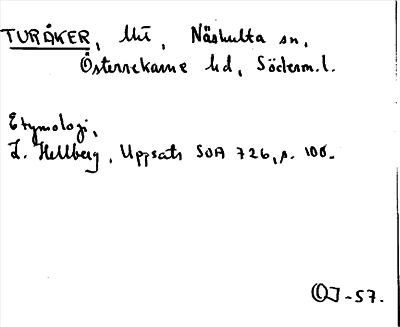 TURÅKER, Näshulta sn,
Österrekarne hd, Söderm.l.
Etymologi,
L. Hellberg, Uppsats SOA 726, s. 100.
OJ-57.